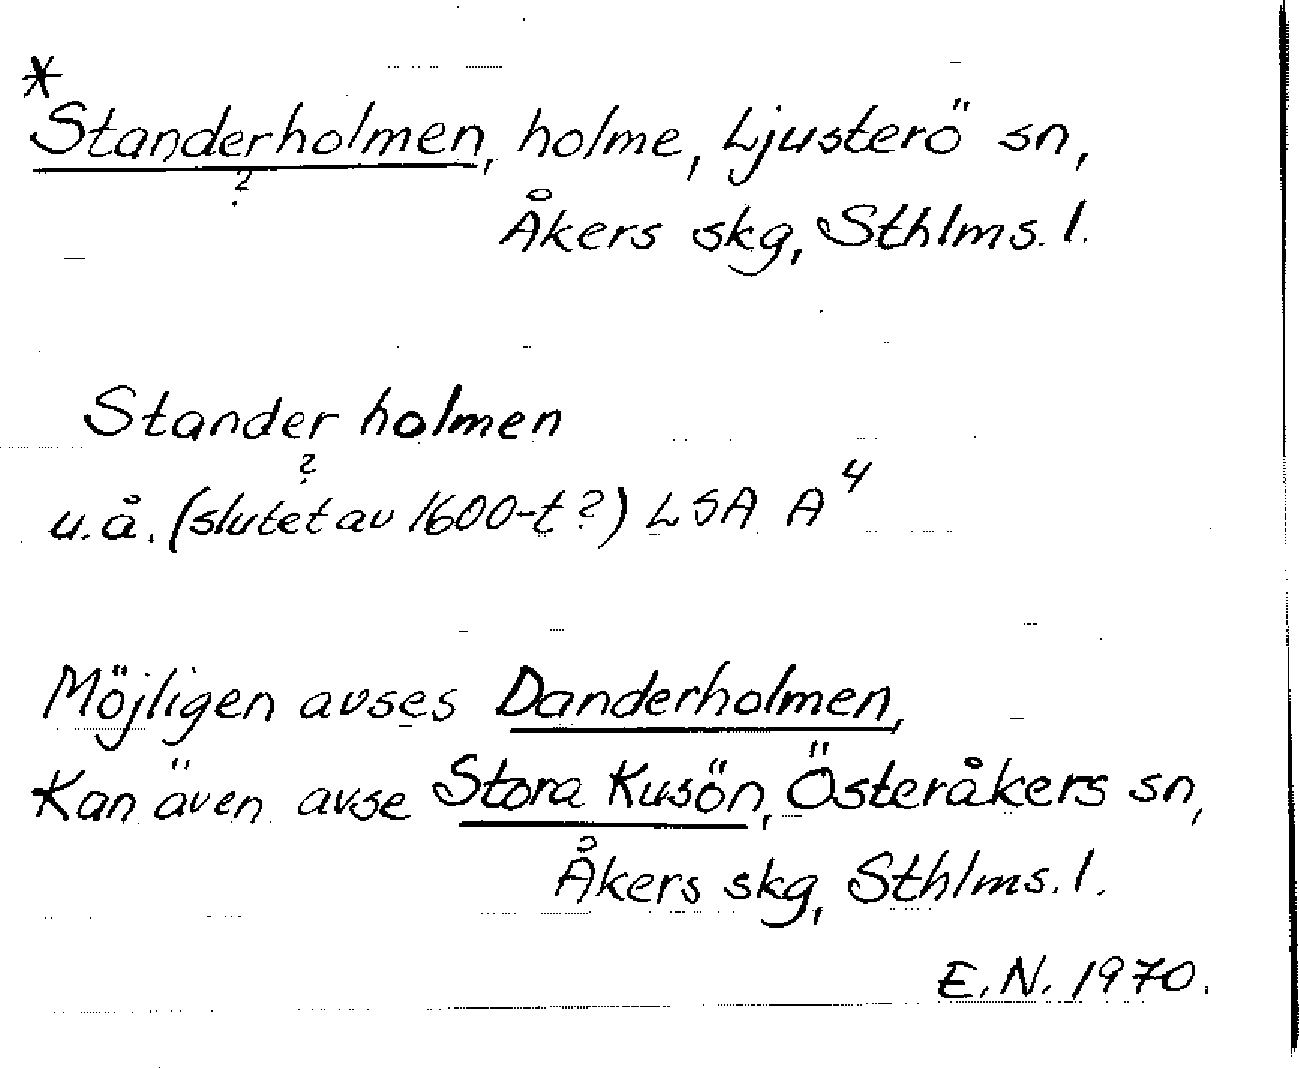 *
Standerholmen, holme, Ljusterö sn,
?
Åkers skg, Sthlms. l.
Stander holmen
?
u.å. (slutet av 1600-t?) LSA A⁴
Möjligen avses Danderholmen,
Kan även avse Stora Kusön, Österåkers sn,
Åkers skg, Sthlms. l.
E. N. 1970.